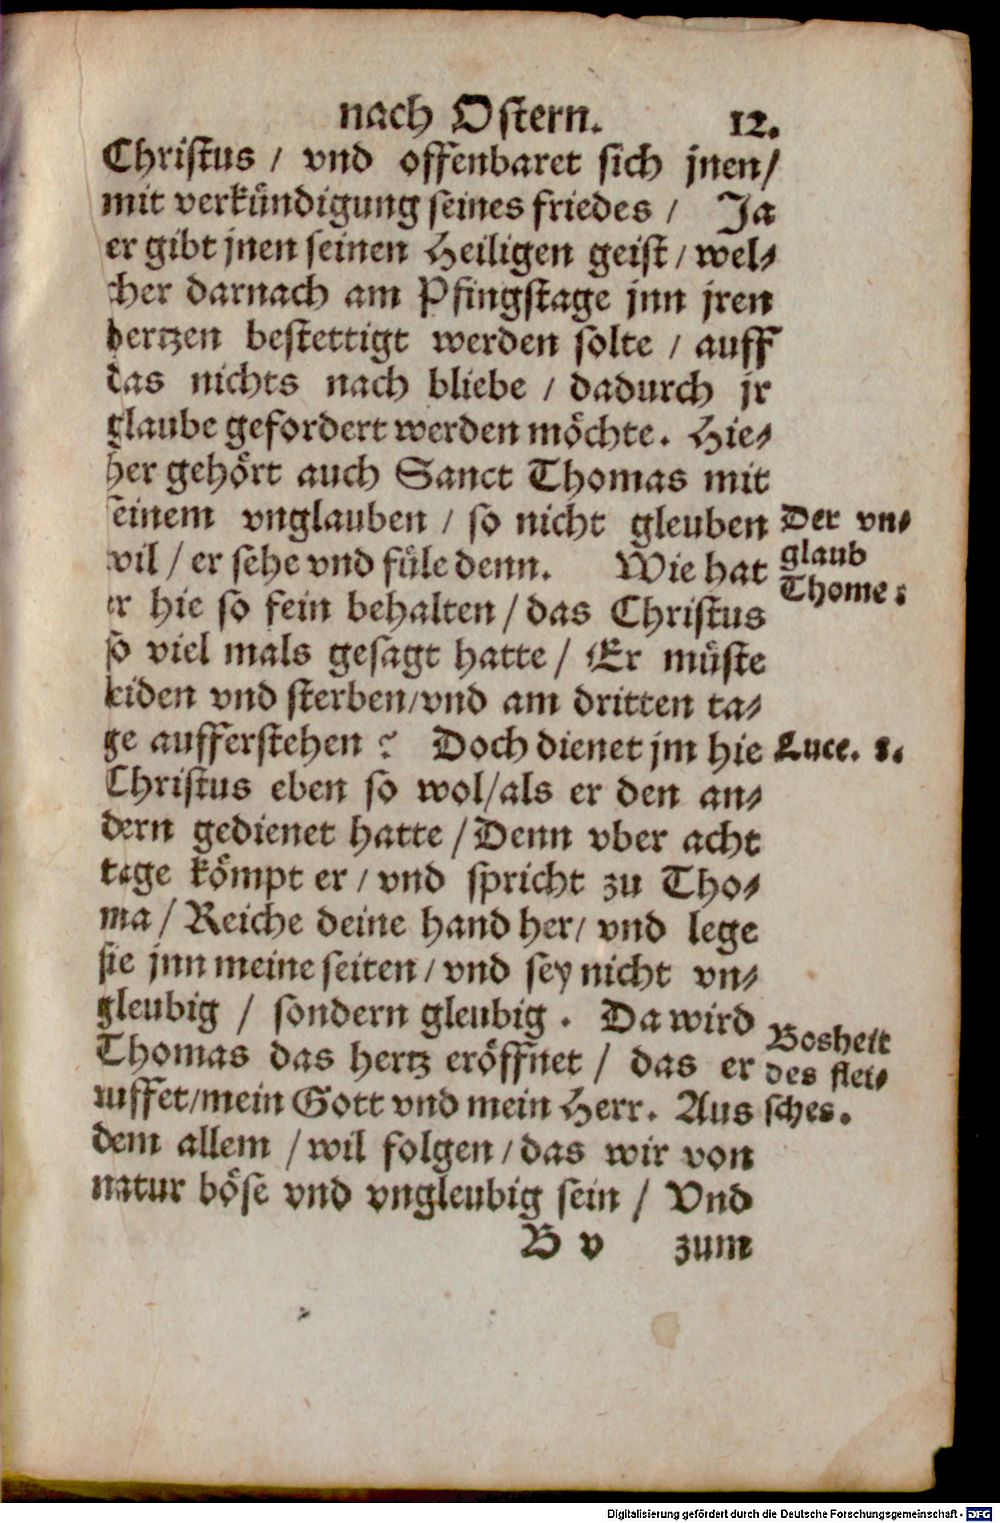 nach Ostern. 12.
Christus / vnd offenbaret sich jnen/
mit verkündigung seines friedes / Ja
er gibt jnen seinen Heiligen geist / wel⸗
cher darnach am Pfingstage jnn jren
hertzen bestettigt werden solte / auff
das nichts nach bliebe / dadurch jr
glaube gefordert werden möchte. Hie⸗
her gehört auch Sanct Thomas mit
seinem vnglauben / so nicht gleuben
wil / er sehe vnd füle denn. Wie hat
er hie so fein behalten / das Christus
so viel mals gesagt hatte / Er müste
leiden vnd sterben/vnd am dritten ta⸗
ge aufferstehen? Doch dienet jm hie
Christus eben so wol/als er den an⸗
dern gedienet hatte / Denn vber acht
tage kömpt er / vnd spricht zu Tho⸗
ma / Reiche deine hand her/ vnd lege
sie jnn meine seiten / vnd sey nicht vn⸗
gleubig / sondern gleubig. Da wird
Thomas das hertz eröffnet / das er
ruffet/mein Gott vnd mein Herr. Aus
dem allem / wil folgen / das wir von
natur böse vnd vngleubig sein / Vnd
B v zum
Der vn⸗
glaub
Thome:
Luce. 8.
Bosheit
des flei⸗
sches.
Digitalisierung gefördert durch die Deutsche Forschungsgemeinschaft - DFG